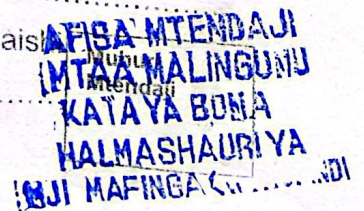 AFISA MTENDAJI
Muhuri
MTAA MALINGUMU
Mtendaji
KATA YA BOMA
HALMASHAURI YA
MJI MAFINGA